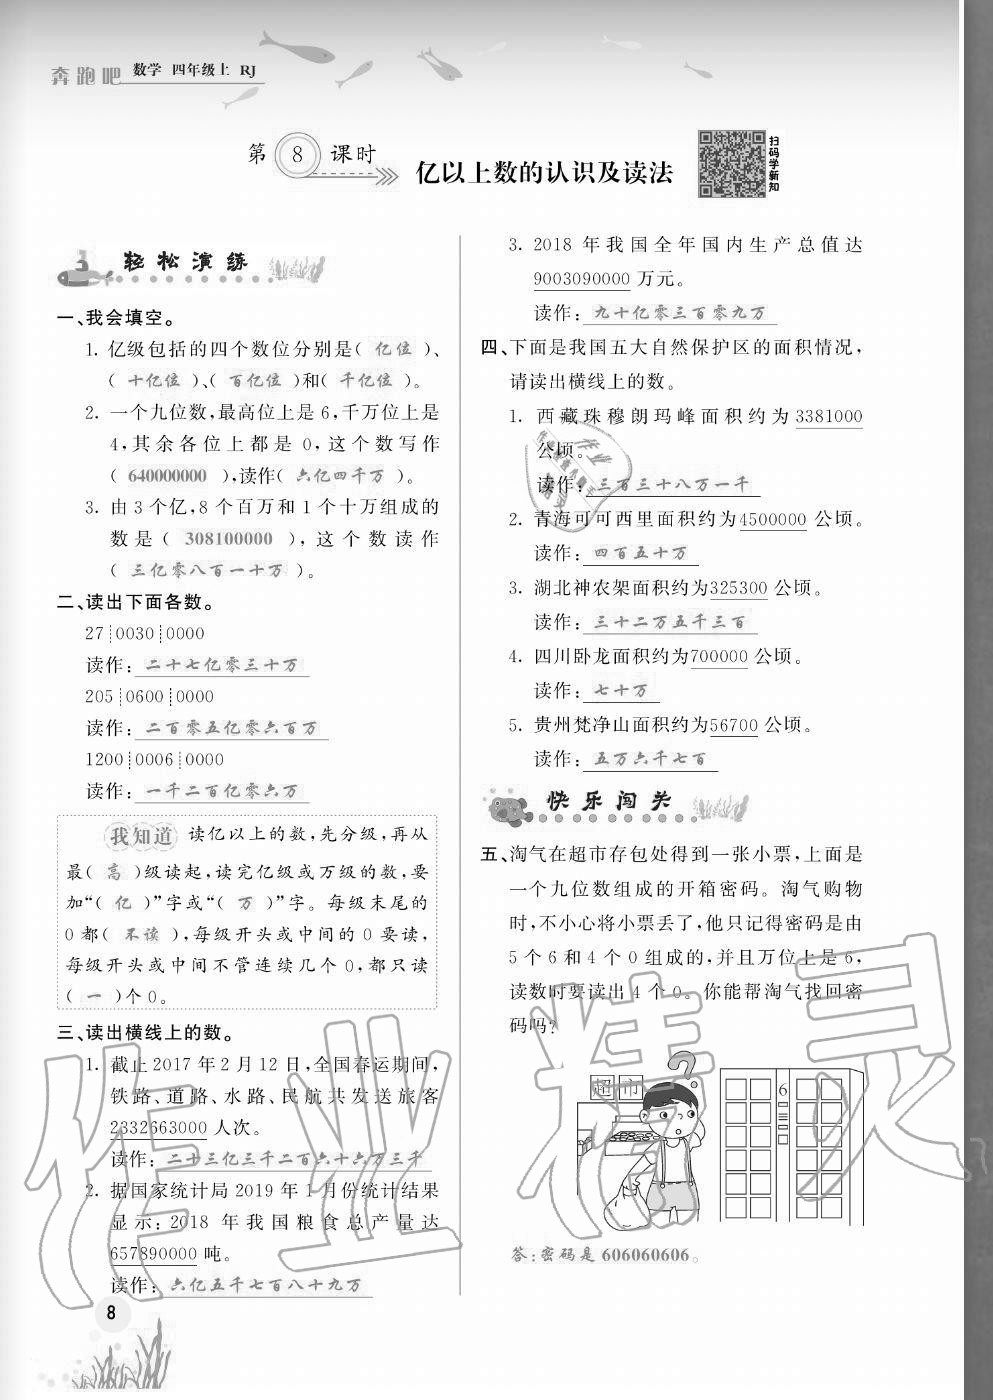 奔跑吧 数学 四年级上 RJ
第 8 课时 亿以上数的认识及读法
扫码学新知
轻松演练
一、我会填空。
1. 亿级包括的四个数位分别是( 亿位 )、
( 十亿位 )、( 百亿位 )和( 千亿位 )。
2. 一个九位数,最高位上是 6,千万位上是
4,其余各位上都是 0,这个数写作
( 640000000 ),读作( 六亿四千万 )。
3. 由 3 个亿,8 个百万和 1 个十万组成的
数是( 308100000 ),这个数读作
( 三亿零八百一十万 )。
二、读出下面各数。
27┊0030┊0000
读作: 二十七亿零三十万
205┊0600┊0000
读作: 二百零五亿零六百万
1200┊0006┊0000
读作: 一千二百亿零六万
我知道 读亿以上的数,先分级,再从
最( 高 )级读起,读完亿级或万级的数,要
加“( 亿 )”字或“( 万 )”字。每级末尾的
0 都( 不读 ),每级开头或中间的 0 要读,
每级开头或中间不管连续几个 0,都只读
( 一 )个 0。
三、读出横线上的数。
1. 截止 2017 年 2 月 12 日,全国春运期间,
铁路、道路、水路、民航共发送旅客
2332663000 人次。
读作: 二十三亿三千二百六十六万三千
2. 据国家统计局 2019 年 1 月份统计结果
显示:2018 年我国粮食总产量达
657890000 吨。
读作: 六亿五千七百八十九万
8
3. 2018 年我国全年国内生产总值达
9003090000 万元。
读作: 九十亿零三百零九万
四、下面是我国五大自然保护区的面积情况,
请读出横线上的数。
1. 西藏珠穆朗玛峰面积约为 3381000
公顷。
读作: 三百三十八万一千
2. 青海可可西里面积约为4500000 公顷。
读作: 四百五十万
3. 湖北神农架面积约为325300 公顷。
读作: 三十二万五千三百
4. 四川卧龙面积约为700000 公顷。
读作: 七十万
5. 贵州梵净山面积约为56700 公顷。
读作: 五万六千七百
快乐闯关
五、淘气在超市存包处得到一张小票,上面是
一个九位数组成的开箱密码。淘气购物
时,不小心将小票丢了,他只记得密码是由
5 个 6 和 4 个 0 组成的,并且万位上是 6,
读数时要读出 4 个 0。你能帮淘气找回密
码吗?
超市
?
6
答:密码是 606060606。
作业精灵